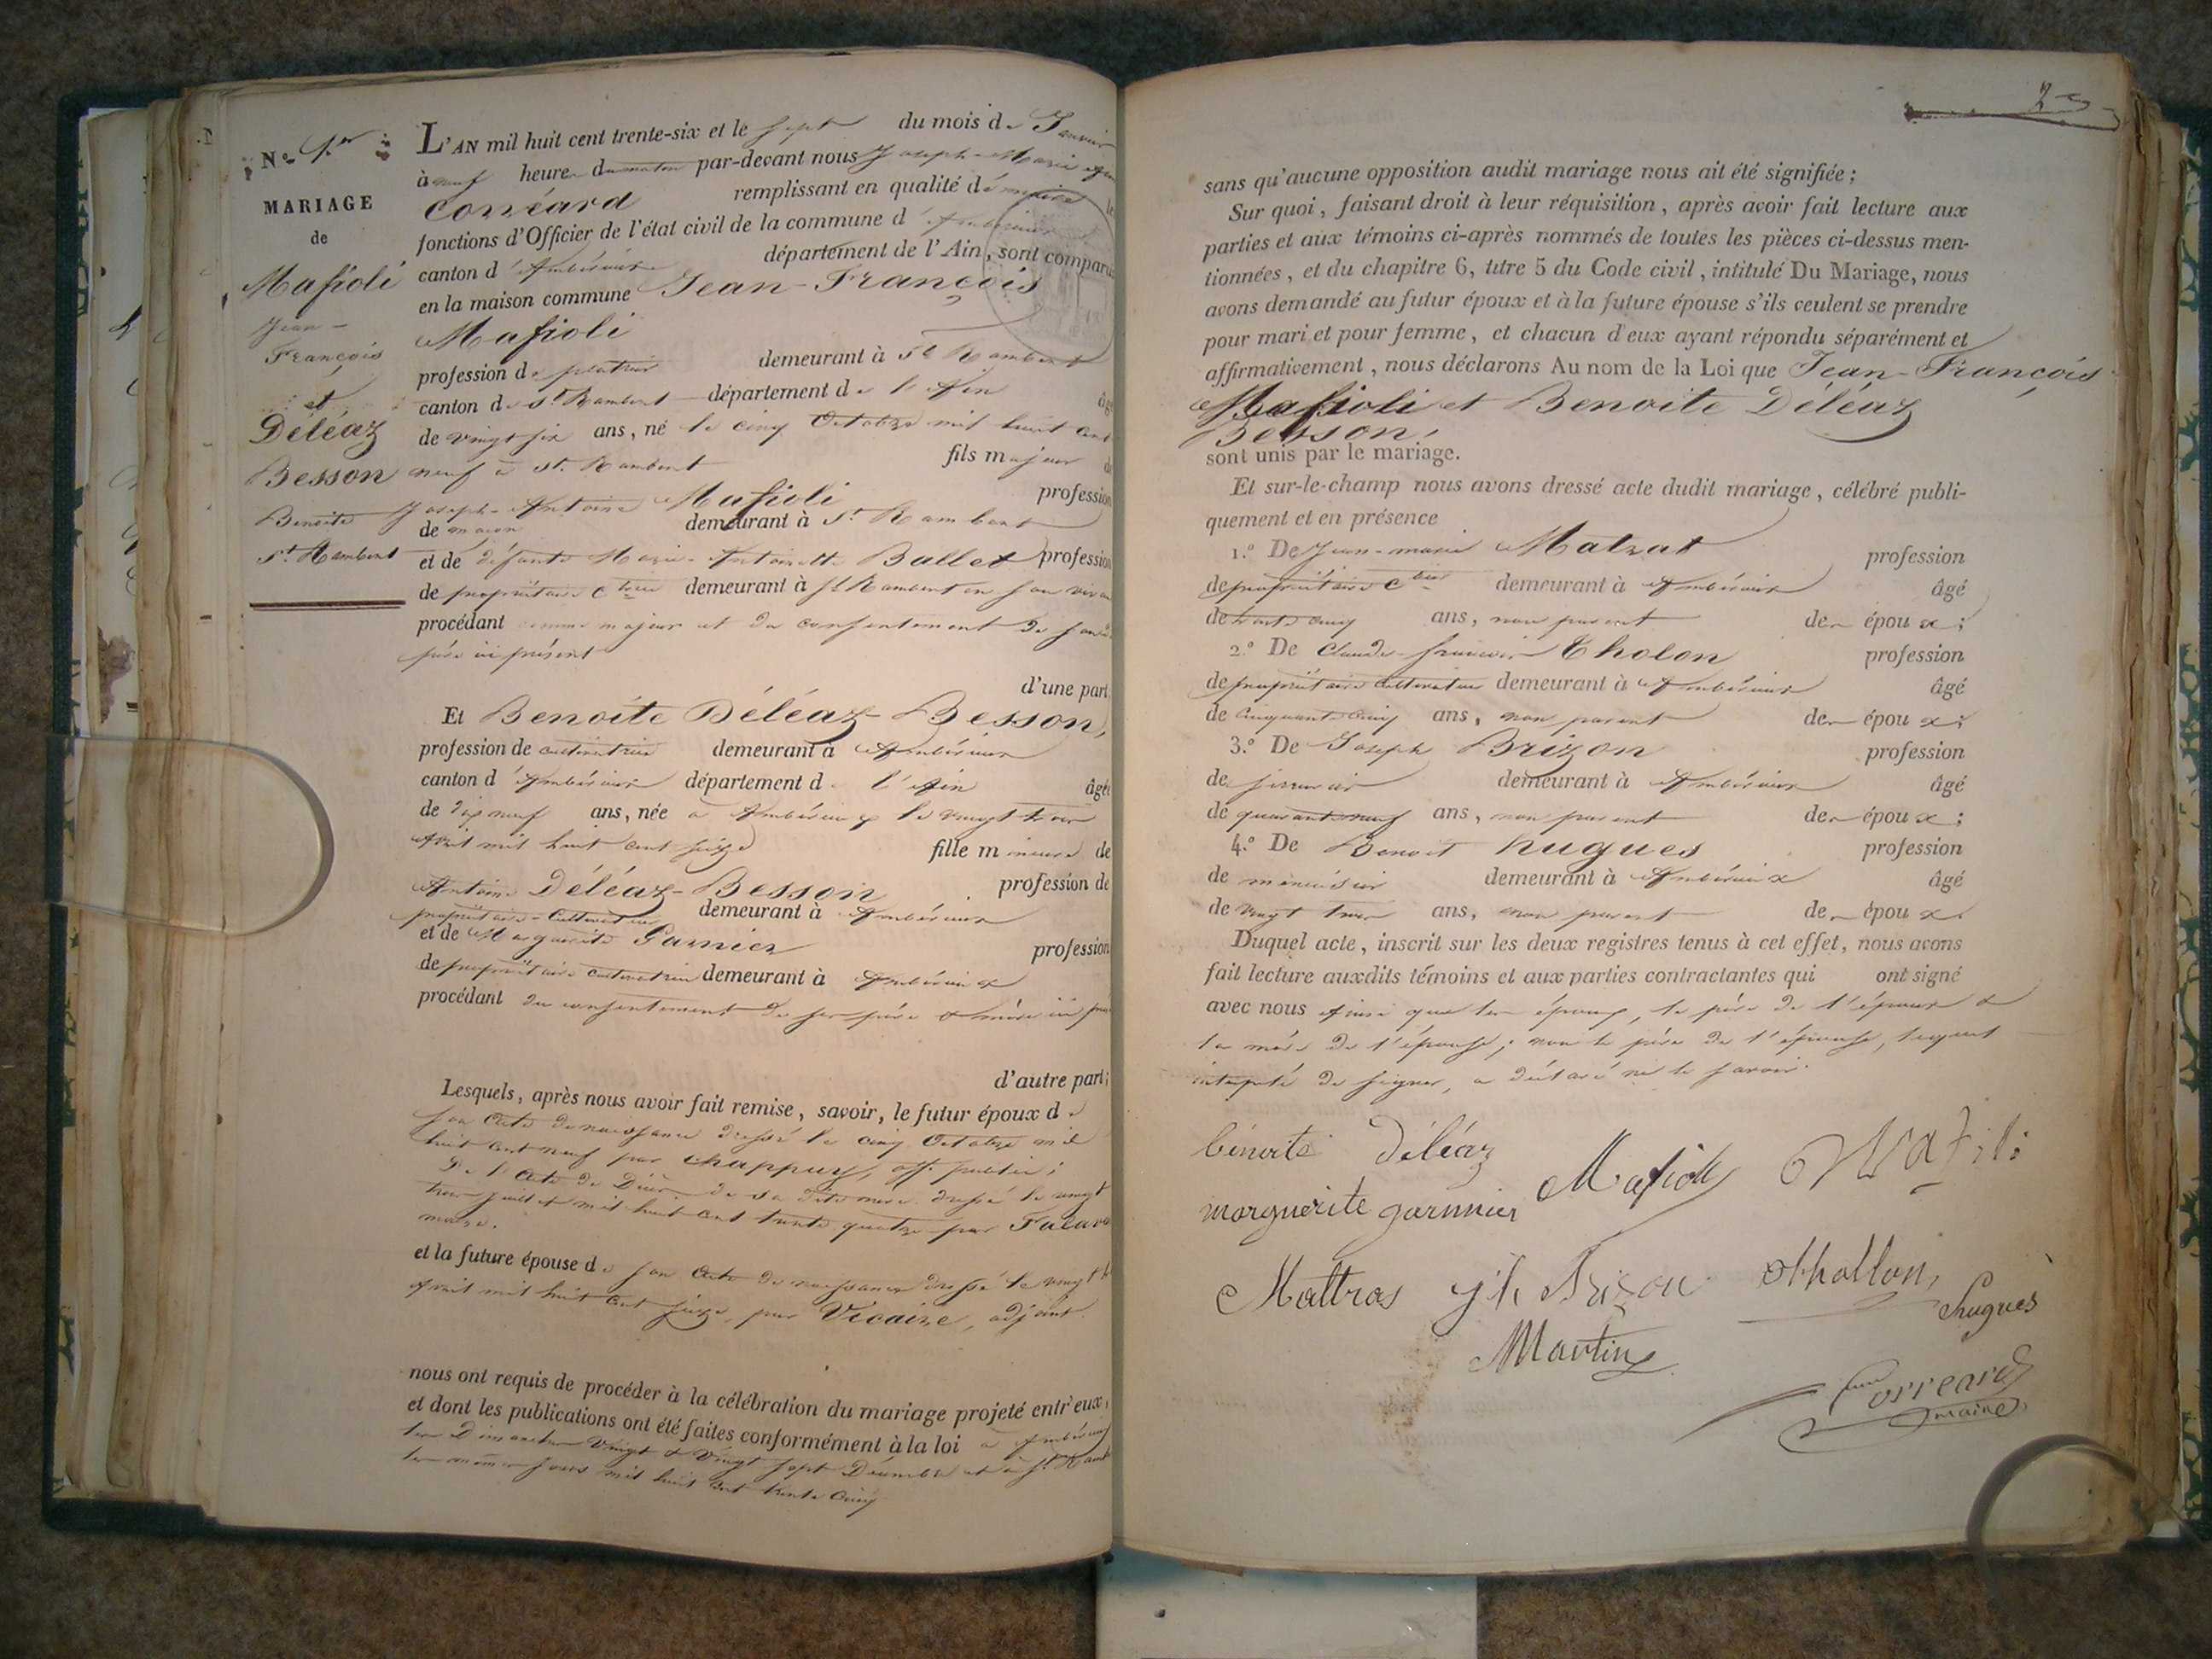 N.º 1.er
MARIAGE
de
Mafioli
Jean-
François
et
Déléaz
Besson
Benoite
St. Rambert
L'AN mil huit cent trente-six et le sept du mois de Janvier
à neuf heures du matin par-devant nous Joseph-Marie
Corréard remplissant en qualité de maire les
fonctions d'Officier de l'état civil de la commune d'Ambérieux
canton d'Ambérieux département de l'Ain, sont comparus
en la maison commune Jean-François
Mafioli
profession de platrier demeurant à St Rambert
canton de St. Rambert département de l'Ain âgé
de vingt six ans, né le cinq Octobre mil huit cent
neuf à St. Rambert fils majeur de
Joseph-Antoine Mafioli profession
de maçon demeurant à St. Rambert
et de défunte Marie-Antoinette Ballet profession
de propriétaire demeurant à St Rambert en son vivant
procédant comme majeur et du consentement de son
père ici présent
d'une part,
Et Benoite Déléaz-Besson,
profession de cultivatrice demeurant à Ambérieux
canton d'Ambérieux département de l'Ain âgée
de dix neuf ans, née à Ambérieux le vingt trois
Avril mil huit cent seize fille mineure de
Antoine Déléaz-Besson profession de
propriétaire-Cultivateur demeurant à Ambérieux
et de Marguerite Garnier profession
de propriétaire cultivatrice demeurant à Ambérieux
procédant du consentement de ses père & mère ici
d'autre part;
Lesquels, après nous avoir fait remise, savoir, le futur époux de
son Acte de naissance dressé le cinq Octobre mil
huit cent neuf par Chappuy, off. public;
De l'Acte de Décès de sa dite mère dressé le vingt
trois juillet mil huit cent trente quatre par
maire.
et la future épouse de son Acte de naissance dressé le vingt
Avril mil huit cent seize, par Vicaire, adjoint.
nous ont requis de procéder à la célébration du mariage projeté entr'eux,
et dont les publications ont été faites conformément à la loi à Ambérieux
les Dimanches Vingt & Vingt sept Décembre et à St Rambert
les mêmes jours mil huit cent trente cinq
2
sans qu'aucune opposition audit mariage nous ait été signifiée;
Sur quoi, faisant droit à leur réquisition, après avoir fait lecture aux
parties et aux témoins ci-après nommés de toutes les pièces ci-dessus men-
tionnées, et du chapitre 6, titre 5 du Code civil, intitulé Du Mariage, nous
avons demandé au futur époux et à la future épouse s'ils veulent se prendre
pour mari et pour femme, et chacun d'eux ayant répondu séparément et
affirmativement, nous déclarons Au nom de la Loi que Jean-François
Mafioli et Benoite Déléaz
Besson,
sont unis par le mariage.
Et sur-le-champ nous avons dressé acte dudit mariage, célébré publi-
quement et en présence
1.º De Jean-marie Matrat profession
de propriétaire demeurant à Ambérieux âgé
de trente cinq ans, non parent des époux;
2.º De Claude-François Tholon profession
de propriétaire Cultivateur demeurant à Ambérieux âgé
de cinquante cinq ans, non parent des époux;
3.º De Joseph Brizon profession
de serrurier demeurant à Ambérieux âgé
de quarante neuf ans, non parent des époux;
4.º De Benoit hugues profession
de menuisier demeurant à Ambérieux âgé
de vingt trois ans, non parent des époux.
Duquel acte, inscrit sur les deux registres tenus à cet effet, nous avons
fait lecture auxdits témoins et aux parties contractantes qui ont signé
avec nous Ainsi que les époux, le père de l'époux &
la mère de l'épouse; non le père de l'épouse, lequel
interpelé de signer, a déclaré ne le savoir.
bénoite Déléaz
Mafioly Mafioli
marguerite garnnier
Mattras jh Brizon Thollon,
hugues
Martin
Corréard
maire